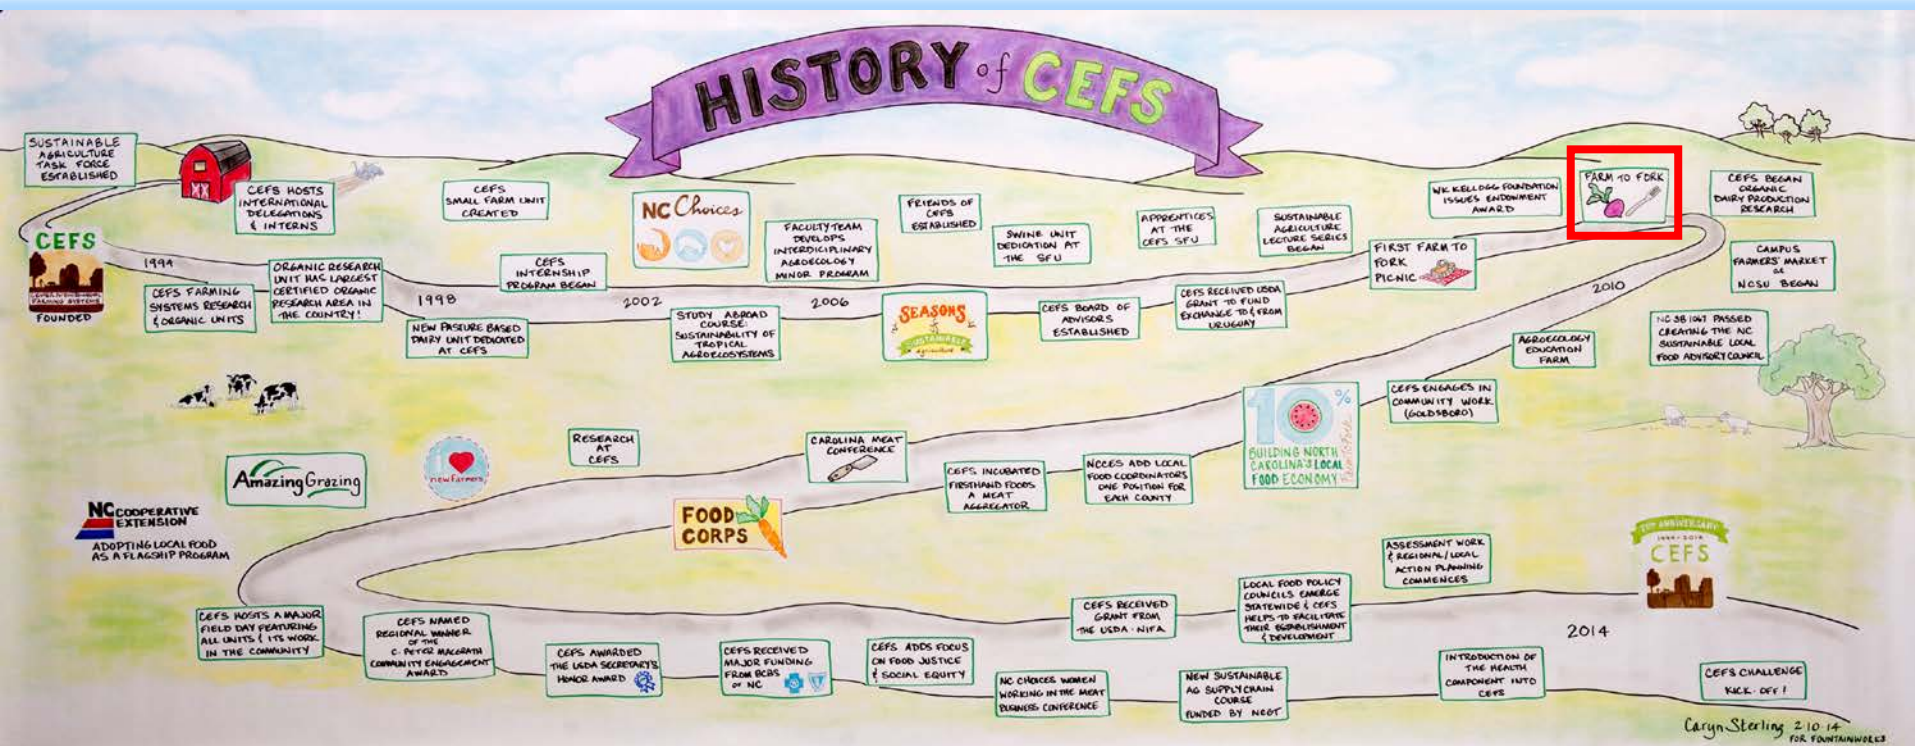 HISTORY of CEFS
SUSTAINABLE
AGRICULTURE
TASK FORCE
ESTABLISHED
CEFS
FOUNDED
1994
CEFS HOSTS
INTERNATIONAL
DELEGATIONS
& INTERNS
CEFS FARMING
SYSTEMS RESEARCH
& ORGANIC UNITS
ORGANIC RESEARCH
UNIT HAS LARGEST
CERTIFIED ORGANIC
RESEARCH AREA IN
THE COUNTRY!
1998
CEFS
SMALL FARM UNIT
CREATED
NEW PASTURE BASED
DAIRY UNIT DEDICATED
AT CEFS
CEFS
INTERNSHIP
PROGRAM BEGAN
2002
NC Choices
STUDY ABROAD
COURSE:
SUSTAINABILITY OF
TROPICAL
AGROECOSYSTEMS
FACULTY TEAM
DEVELOPS
INTERDICIPLINARY
AGROECOLOGY
MINOR PROGRAM
2006
FRIENDS OF
CEFS
ESTABLISHED
SEASONS
of
SUSTAINABLE
Agriculture
SWINE UNIT
DEDICATION AT
THE SFU
CEFS BOARD OF
ADVISORS
ESTABLISHED
APPRENTICES
AT THE
CEFS SFU
CEFS RECEIVED USDA
GRANT TO FUND
EXCHANGE TO & FROM
URUGUAY
SUSTAINABLE
AGRICULTURE
LECTURE SERIES
BEGAN
FIRST FARM TO
FORK
PICNIC
WK KELLOGG FOUNDATION
ISSUES ENDOWMENT
AWARD
FARM TO FORK
CEFS BEGAN
ORGANIC
DAIRY PRODUCTION
RESEARCH
CAMPUS
FARMERS' MARKET
at
NCSU BEGAN
2010
NC SB 1067 PASSED
CREATING THE NC
SUSTAINABLE LOCAL
FOOD ADVISORY COUNCIL
AGROECOLOGY
EDUCATION
FARM
CEFS ENGAGES IN
COMMUNITY WORK
(GOLDSBORO)
10%
BUILDING NORTH
CAROLINA'S LOCAL
FOOD ECONOMY
NCCES ADD LOCAL
FOOD COORDINATORS
ONE POSITION FOR
EACH COUNTY
CEFS INCUBATED
FIRSTHAND FOODS
A MEAT
AGGREGATOR
CAROLINA MEAT
CONFERENCE
FOOD
CORPS
RESEARCH
AT
CEFS
I
new farmers
AmazingGrazing
NC COOPERATIVE
EXTENSION
ADOPTING LOCAL FOOD
AS A FLAGSHIP PROGRAM
CEFS HOSTS A MAJOR
FIELD DAY FEATURING
ALL UNITS & ITS WORK
IN THE COMMUNITY
CEFS NAMED
REGIONAL WINNER
OF THE
C. PETER MAGRATH
COMMUNITY ENGAGEMENT
AWARD
CEFS AWARDED
THE USDA SECRETARY'S
HONOR AWARD
CEFS RECEIVED
MAJOR FUNDING
FROM BCBS
OF NC
CEFS ADDS FOCUS
ON FOOD JUSTICE
& SOCIAL EQUITY
NC CHOICES WOMEN
WORKING IN THE MEAT
BUSINESS CONFERENCE
CEFS RECEIVED
GRANT FROM
THE USDA-NIFA
NEW SUSTAINABLE
AG SUPPLY CHAIN
COURSE
FUNDED BY NCGT
LOCAL FOOD POLICY
COUNCILS EMERGE
STATEWIDE & CEFS
HELPS TO FACILITATE
THEIR ESTABLISHMENT
& DEVELOPMENT
ASSESSMENT WORK
& REGIONAL/LOCAL
ACTION PLANNING
COMMENCES
INTRODUCTION OF
THE HEALTH
COMPONENT INTO
CEFS
2014
20TH ANNIVERSARY
1994-2014
CEFS
CEFS CHALLENGE
KICK-OFF!
Caryn Sterling 2.10.14
FOR FOUNTAINWORKS